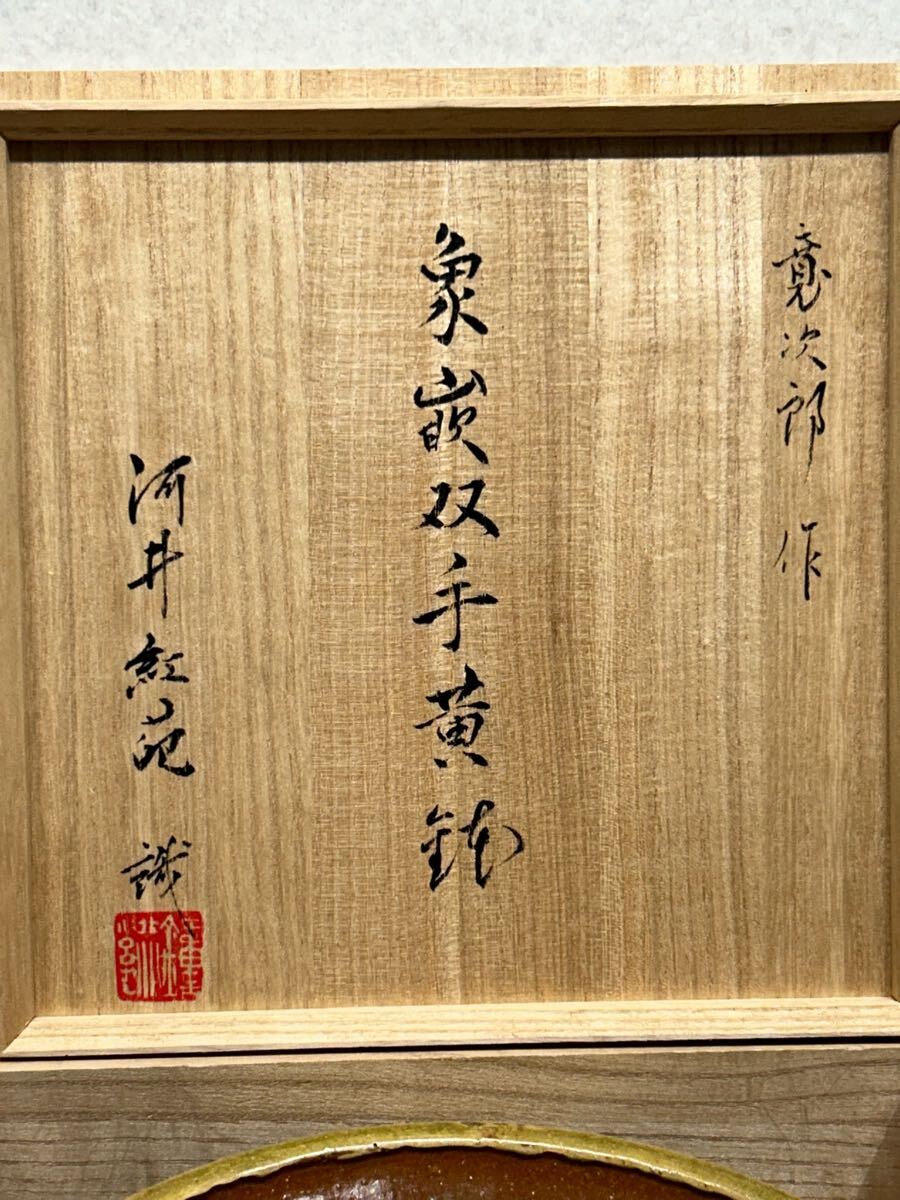 寛次郎 作
象嵌双手黄鉢
河井紅葩 識